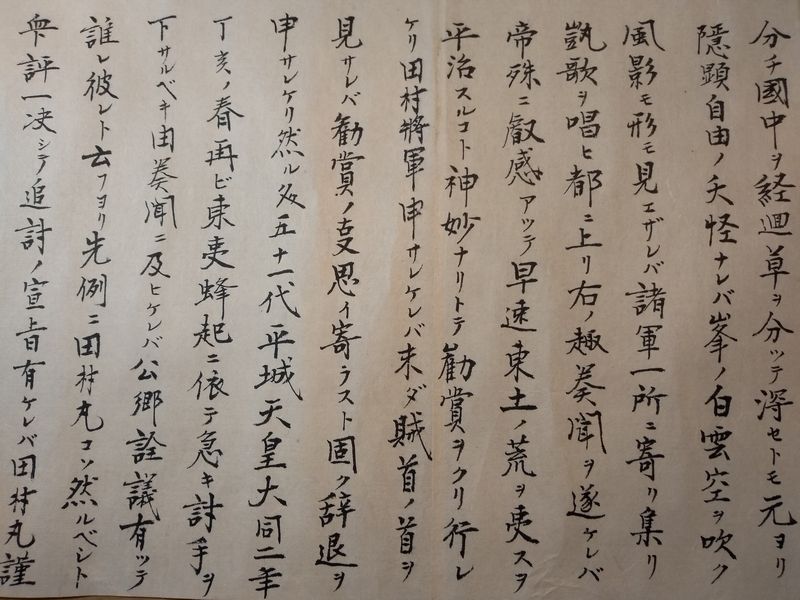 分チ國中ヲ経廻草ヲ分ツテ滯セトモ元ヨリ
隱顕自由ノ夭怪ナレバ峯ノ白雲空ヲ吹ク
風影モ形モ見エザレバ諸軍一所ニ寄リ集リ
凱歌ヲ唱ヒ都ニ上リ右ノ趣奏聞ヲ遂ケレバ
帝殊ニ叡感アツテ早速東土ノ荒ヲ夷スヲ
平治スルコト神妙ナリトテ勸賞ヲクリ行レ
ケリ田村將軍申サレケレバ未ダ賊首ノ首ヲ
見サレバ勸賞ノ支思イ寄ラスト固ク辞退ヲ
申サレケリ然ル処五十一代平城天皇大同二年
丁亥ノ春再ビ東夷蜂起ニ依テ急キ討手ヲ
下サルベキ由奏聞ニ及ヒケレバ公卿詮議有ッテ
誰レ彼レト云フヨリ先例ニ田村丸コソ然ルベシト
衆評一决シテ追討ノ宣旨有ケレバ田村丸謹